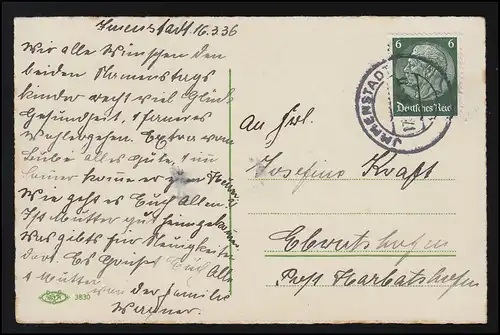 Immenstadt. 16.3.36
Wir alle Wünschen den
beiden Namenstags
kinder recht viel Glück
Gesundheit, u ferneres
Wohlergehen. Extra von
alles Gute,
komme er zum
Wie geht es Euch Allen.
Ist Mutter gut heimgekommen
Was gibts für Neuigkeiten
dort. Es Grüßt Euch Alle
u Mutter von der Familie
Wagner.
3830
6 6
Deutsches Reich
IMMENSTADT
An Frl.
Josefine Kraft
Ebratshofen
Post Harbatshofen